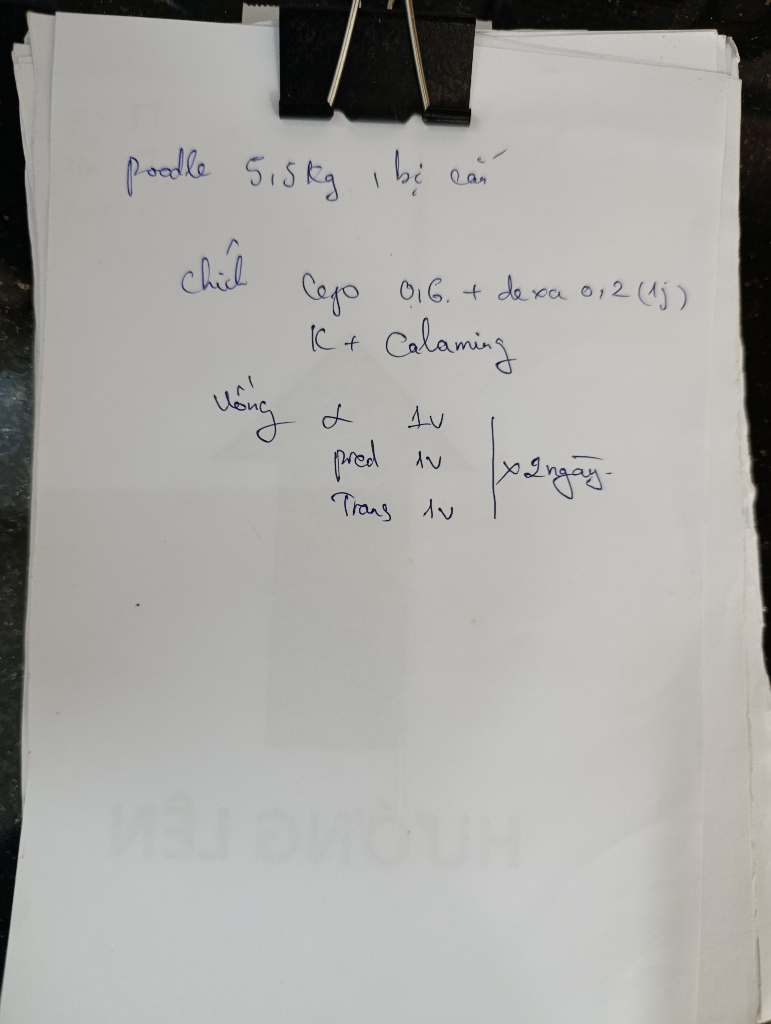 poodle 5,5kg, bị cắn
chích Cefo 0,6. + dexa 0,2 (1j)
K + Calaming
Uống α 1v
pred 1v
Trans 1v
x 2 ngày.
HƯỚNG LÊN